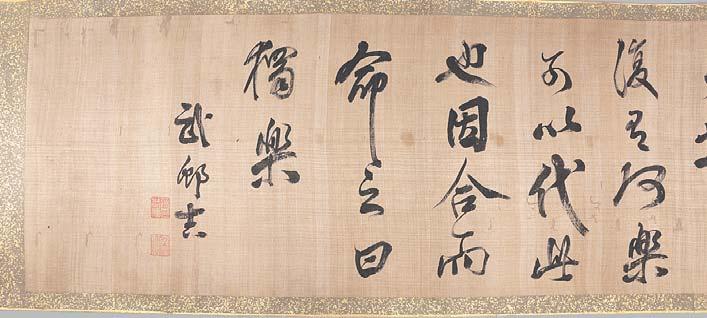 復有何樂
可以代此
也因合而
命之曰
獨樂
武邨吉